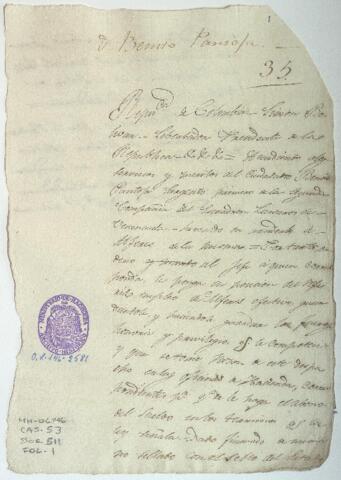 1
D. Benito Pantoja.
35.
Repúb.ca de Colombia = Simon Bo
livar = Libertador Presidente de la
Republica &.&.&.= Atendiendo a los
servicios y meritos del ciudadano Benito
Pantoja Sargento primero de la segunda
Compañia del Escuadron Lanceros de
Venezuela = he venido en nombrarle
Alferez de la misma = Por tanto or
deno y mando al Jefe á quien corres
ponda, le ponga en posesion del refe
rido empleo de Alferez efectivo guar
dandole y haciendole guardar los fueros
honores y privilegios q.e le competen
y que se tome razon de este despa
cho en las oficinas de Hacienda corres
pondientes p.a q.e se le haga el abono
del sueldo en los terminos q.e la
ley señala. Dado firmado de mi ma
no sellado con el sello de
MINISTERIO DE HACIENDA
O.R-146-2581
MH-OL146
CAS-53
DOC 511
FOL-1